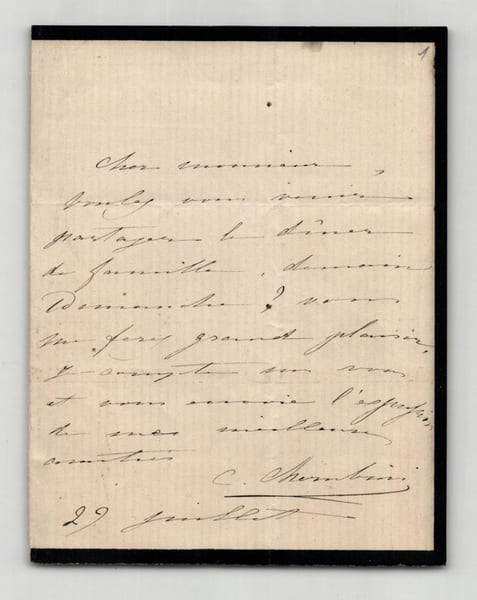 1
Cher monsieur,
voulez vous venir
partager le dîner
de famille, demain
Dimanche ? vous
me ferez grand plaisir,
compte sur vous
et vous envoie l'expression
de mes meilleures
amitiés
C. Cherubini
29 juillet